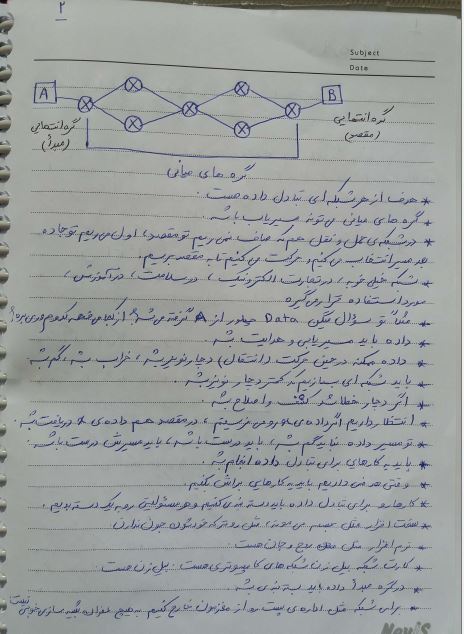 ۲
Subject
Date
A
B
گره انتهایی
(مبدأ)
گره انتهایی
(مقصد)
گره های میانی
* هدف از هر شبکه ای تبادل داده هست.
* گره های میانی می تونه مسیریاب باشه.
* در شبکه ی حمل و نقل هم که صاف نمی ریم تو مقصد، اول می ریم تو جاده
مسیر انتخاب می کنیم و حرکت می کنیم تا به مقصد برسیم.
* شبکه خیلی خوبه، در تجارت الکترونیک، در سلامت، در آموزش،
مورد استفاده قرار می گیره
* مثلاً تو سؤال میگن Data چطور از A گرفته می شه؟ از کجا می فهمه کدوم ور می بره؟
* داده باید مسیریابی و هدایت بشه.
* داده ممکنه در حین حرکت (انتقال) دچار نویز بشه، خراب بشه، گم بشه.
* باید شبکه ای بسازیم که کمتر دچار نویز بشه.
* اگر دچار خطا شد کشف و اصلاح بشه.
* انتظار داریم اگر داده ی x رو می فرستیم، در مقصد هم داده ی x دریافت بشه.
* تو مسیر داده نباید گم بشه، باید درست باشه، باید مسیرش درست باشه.
* باید یه کارهایی برای تبادل داده انجام بشه.
* وقتی هدفی داریم باید یه کارهایی براش بکنیم.
* کارها رو برای تبادل داده باید دسته بندی کنیم و هر مسئولیتی رو به یک دسته بدیم.
* سخت افزار مثل جسم می مونه، مثل روتر که خودشون جون ندارن.
* نرم افزار مثل روح و جان هست.
* کارت شبکه پل زدن شبکه های کامپیوتری هست. پل زن هست.
* در گره مبدأ داده باید بسته بندی بشه.
* برای شبکه مثل اداره ی پست رو از مغزمون خارج کنیم به هیچ عنوان شبیه سازی خوبی نیست